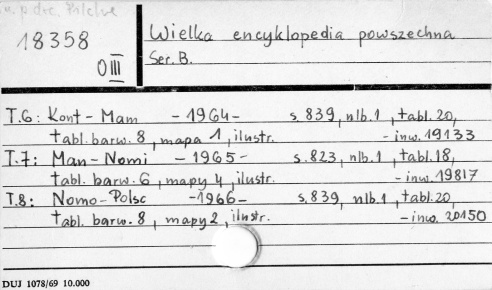 18358
O III
Wielka encyklopedia powszechna
Ser. B.
T.6: Kont - Mam - 1964 - s. 839, nlb. 1, tabl. 20,
tabl. barw. 8, mapa 1, ilustr. - inw. 19133
T.7: Man - Nomi - 1965 - s. 823, nlb. 1, tabl. 18,
tabl. barw. 6, mapy 4, ilustr. - inw. 19817
T.8: Nomo - Polsc - 1966 - s. 839, nlb. 1, tabl. 20,
tabl. barw. 8, mapy 2, ilustr. - inw. 20150
DUJ 1078/69 10.000